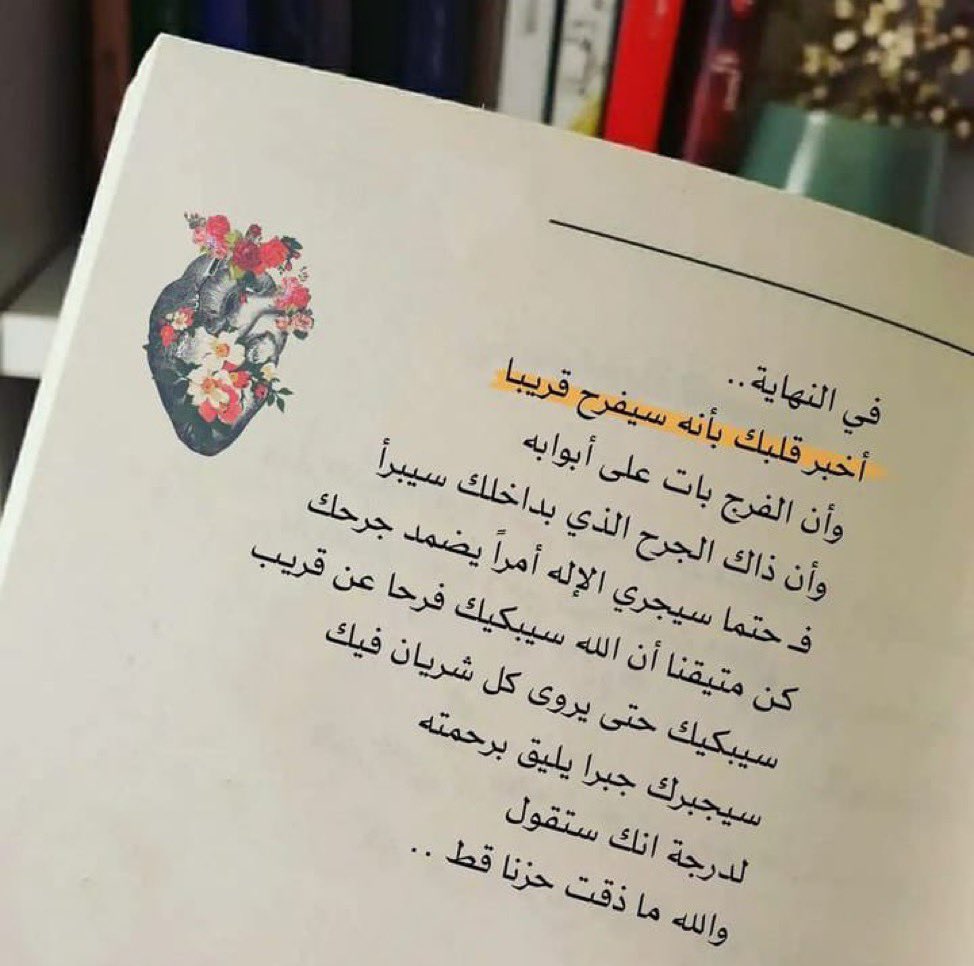 في النهاية..
أخبر قلبك بأنه سيفرح قريبا
وأن الفرج بات على أبوابه
وأن ذاك الجرح الذي بداخلك سيبرأ
فـ حتما سيجري الإله أمراً يضمد جرحك
كن متيقنا أن الله سيبكيك فرحا عن قريب
سيبكيك حتى يروى كل شريان فيك
سيجبرك جبرا يليق برحمته
لدرجة انك ستقول
والله ما ذقت حزنا قط ..